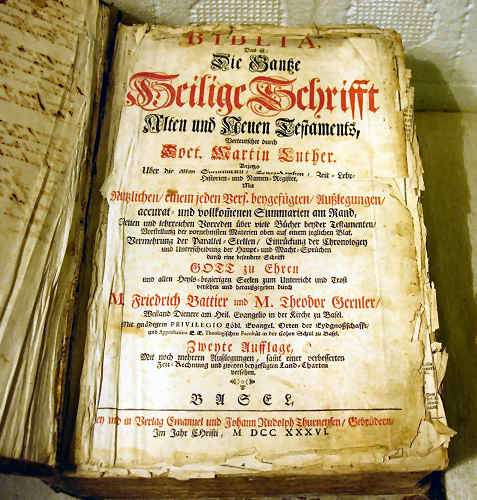 BIBLIA,
Das ist:
Die Gantze
Heilige Schrifft
Alten und Neuen Testaments,
Verteutschet durch
Doct. Martin Luther.
Über die alten Zeit- Lehr-
Historien- und Namen-Register,
Mit
Nützlichen/ einem jeden Vers. beygefügten/ Außlegungen/
accurat- und vollkom̃enen Summarien am Rand,
Neuen und lehrreichen Vorreden über viele Bücher beyder Testamenten/
Vorstellung der vornehmsten Materien oben auf einem jeglichen Blat.
Vermehrung der Parallel-Stellen/ Einrückung der Chronologey
und Unterscheidung der Haupt- und Macht-Sprüchen
durch eine besondere Schrifft
GOTT zu Ehren
und allen Heyls-begierigen Seelen zum Unterricht und Trost
versehen und herausgegeben durch
M. Friedrich Battier und M. Theodor Gernler/
Weiland Dienere am Heil. Evangelio in der Kirche zu Basel.
Mit gnädigem PRIVILEGIO Löbl. Evangel. Orten der Eydgnoßschafft/
und Approbation E. E. Theologischen Facultät in der Hohen Schul zu Basel.
Zweyte Aufflage,
Mit noch mehrern Außlegungen, samt einer verbesserten
Zeit-Rechnung und zweyen beygefügten Land-Charten
versehen.
BASEL,
und in Verlag Emanuel und Johann Rudolph Thurneysen/ Gebrüdern/
Im Jahr Christi, M DCC XXXVI.